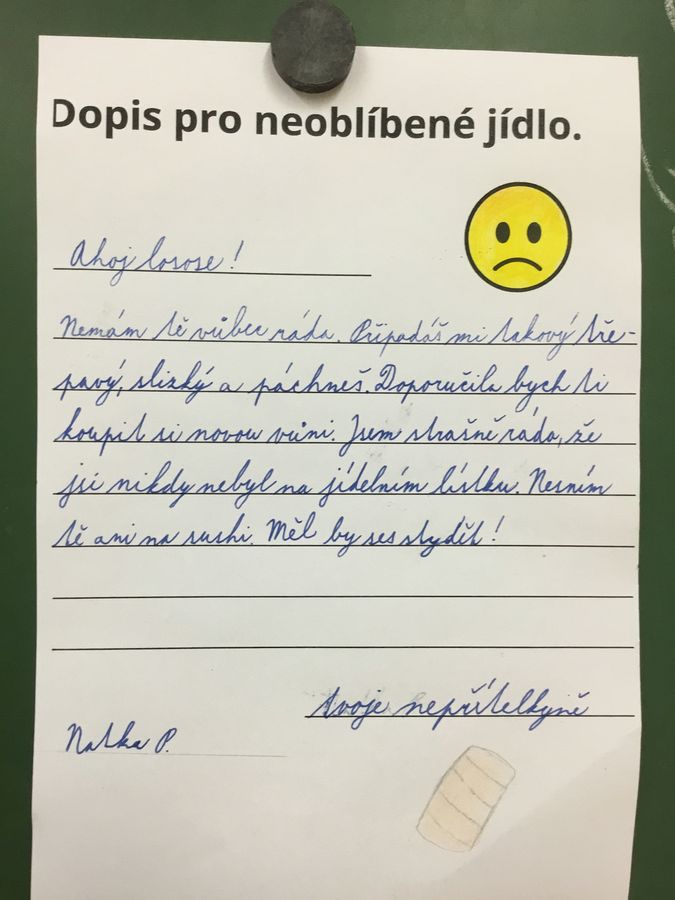 Dopis pro neoblíbené jídlo.
Ahoj losose!
Nemám tě vůbec ráda. Připadáš mi takový tře-
pavý, slizký a páchneš. Doporučila bych ti
koupit si novou vůni. Jsem strašně ráda, že
jsi nikdy nebyl na jídelním lístku. Nesním
tě ani na sushi. Měl by ses stydět!
tvoje nepřítelkyně
Natka P.